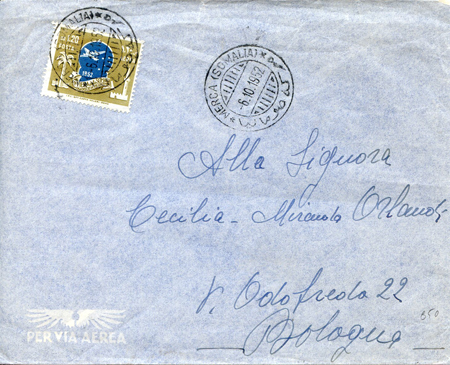 MERCA (SOMALIA)
-6.10.1952
1.20
1952
Alla Signora
Cecilia - Miranda Orlandi
V. Odofredo 22
Bologna
350
PER VIA AEREA